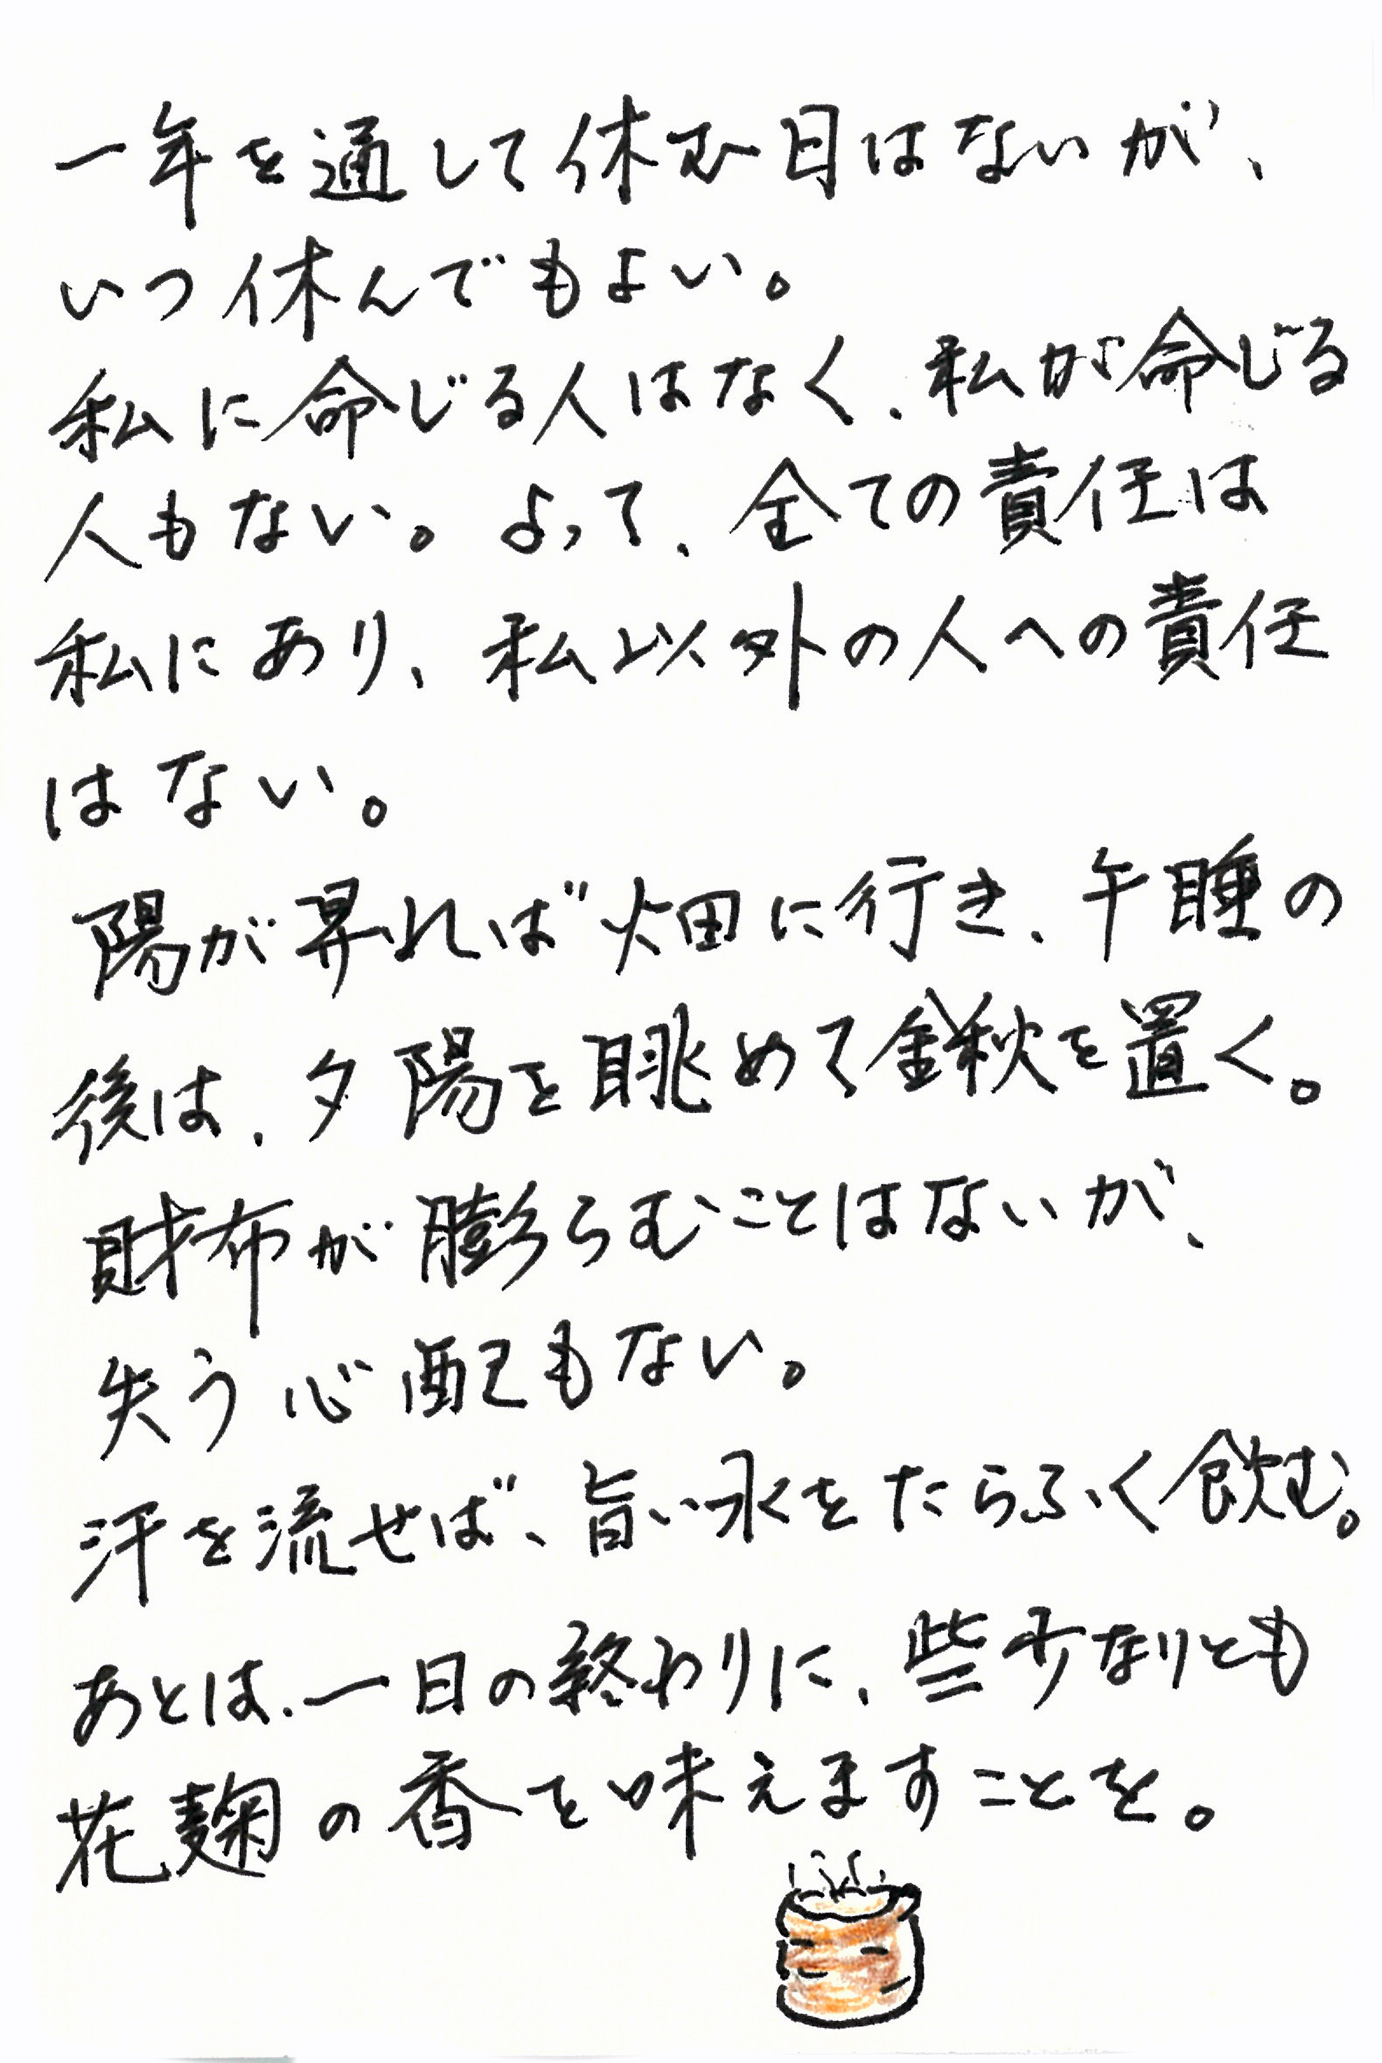 一年を通して休む日はないが、
いつ休んでもよい。
私に命じる人はなく、私が命じる
人もない。よって、全ての責任は
私にあり、私以外の人への責任
はない。
陽が昇れば畑に行き、午睡の
後は、夕陽を眺めて鍬を置く。
財布が膨らむことはないが、
失う心配もない。
汗を流せば、旨い水をたらふく飲む。
あとは、一日の終わりに、些少なりとも
花麹の香を味えますことを。